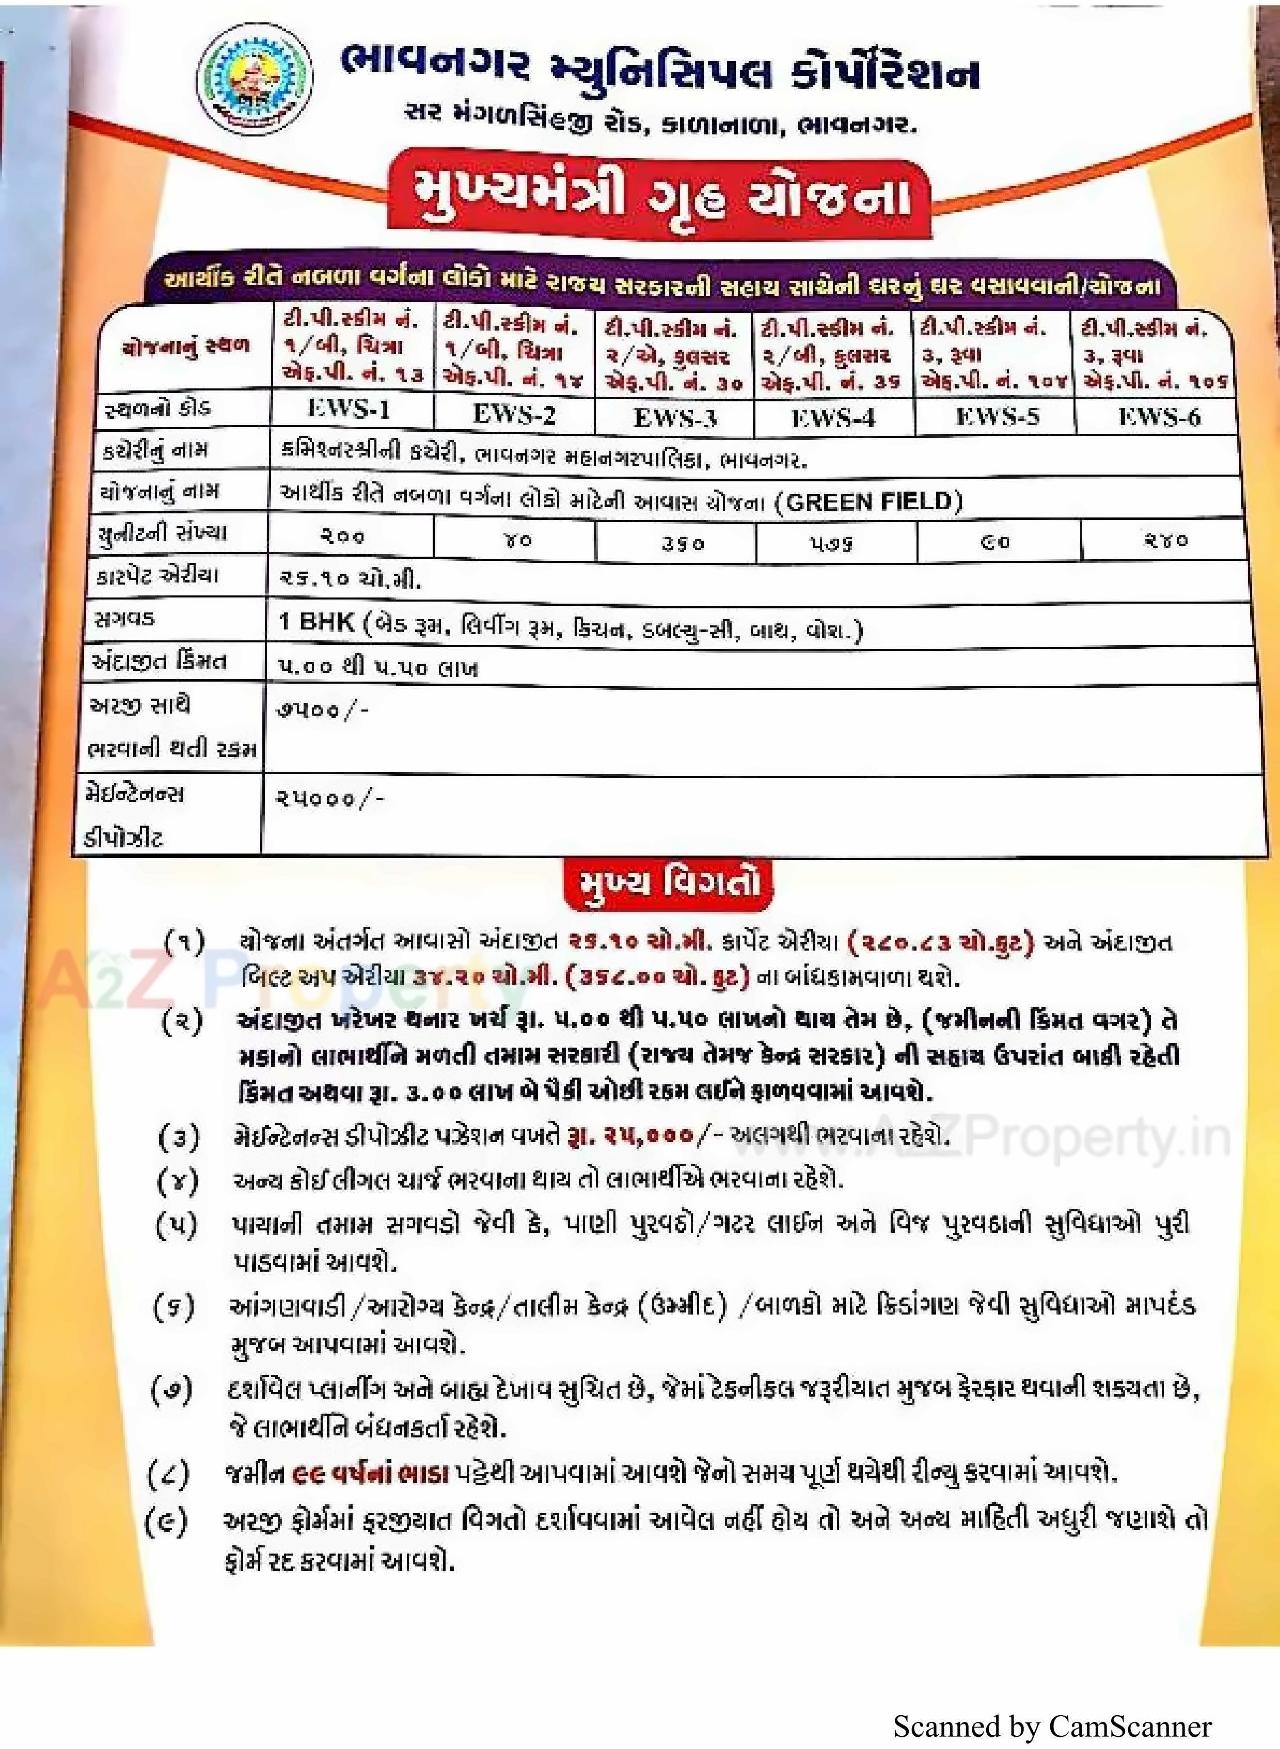 ભાવનગર મ્યુનિસિપલ કોર્પોરેશન
સર મંગળસિંહજી રોડ, કાળાનાળા, ભાવનગર.
મુખ્યમંત્રી ગૃહ યોજના
આર્થીક રીતે નબળા વર્ગના લોકો માટે રાજ્ય સરકારની સહાય સાથેની ઘરનું ઘર વસાવવાની યોજના
યોજનાનું સ્થળ ટી.પી.સ્કીમ નં. ૧/બી, ચિત્રા એફ.પી. નં. ૧૩ ટી.પી.સ્કીમ નં. ૧/બી, ચિત્રા એફ.પી. નં. ૧૪ ટી.પી.સ્કીમ નં. ૨/એ, ફુલસર એફ.પી. નં. ૩૦ ટી.પી.સ્કીમ નં. ૨/બી, ફુલસર એફ.પી. નં. ૩૬ ટી.પી.સ્કીમ નં. ૩, રૂવા એફ.પી. નં. ૧૦૪ ટી.પી.સ્કીમ નં. ૩, રૂવા એફ.પી. નં. ૧૦૬
સ્થળનો કોડ EWS-1 EWS-2 EWS-3 EWS-4 EWS-5 EWS-6
કચેરીનું નામ કમિશ્નરશ્રીની કચેરી, ભાવનગર મહાનગરપાલિકા, ભાવનગર.
યોજનાનું નામ આર્થીક રીતે નબળા વર્ગના લોકો માટેની આવાસ યોજના (GREEN FIELD)
યુનીટની સંખ્યા ૨૦૦ ૪૦ ૩૬૦ ૫૭૬ ૯૦ ૨૪૦
કારપેટ એરીયા ૨૬.૧૦ ચો.મી.
સગવડ 1 BHK (બેડ રૂમ, લિવીંગ રૂમ, કિચન, ડબલ્યુ-સી, બાથ, વોશ.)
અંદાજીત કિંમત ૫.૦૦ થી ૫.૫૦ લાખ
અરજી સાથે ૭૫૦૦/-
ભરવાની થતી રકમ
મેઈન્ટેનન્સ ૨૫૦૦૦/-
ડીપોઝીટ
મુખ્ય વિગતો
(૧) યોજના અંતર્ગત આવાસો અંદાજીત ૨૬.૧૦ ચો.મી. કાર્પેટ એરીયા (૨૮૦.૮૩ ચો.ફુટ) અને અંદાજીત
બિલ્ટ અપ એરીયા ૩૪.૨૦ ચો.મી. (૩૬૮.૦૦ ચો.ફુટ) ના બાંધકામવાળા થશે.
(૨) અંદાજીત ખરેખર થનાર ખર્ચ રૂા. ૫.૦૦ થી ૫.૫૦ લાખનો થાય તેમ છે, (જમીનની કિંમત વગર) તે
મકાનો લાભાર્થીને મળતી તમામ સરકારી (રાજ્ય તેમજ કેન્દ્ર સરકાર) ની સહાય ઉપરાંત બાકી રહેતી
કિંમત અથવા રૂા. ૩.૦૦ લાખ બે પૈકી ઓછી રકમ લઈને ફાળવવામાં આવશે.
(૩) મેઈન્ટેનન્સ ડીપોઝીટ પઝેશન વખતે રૂા. ૨૫,૦૦૦/- અલગથી ભરવાના રહેશે.
(૪) અન્ય કોઈ લીગલ ચાર્જ ભરવાના થાય તો લાભાર્થીએ ભરવાના રહેશે.
(૫) પાયાની તમામ સગવડો જેવી કે, પાણી પુરવઠો/ગટર લાઈન અને વિજ પુરવઠાની સુવિધાઓ પુરી
પાડવામાં આવશે.
(૬) આંગણવાડી/આરોગ્ય કેન્દ્ર/તાલીમ કેન્દ્ર (ઉમ્મીદ) /બાળકો માટે ક્રિડાંગણ જેવી સુવિધાઓ માપદંડ
મુજબ આપવામાં આવશે.
(૭) દર્શાવેલ પ્લાનીંગ અને બાહ્ય દેખાવ સુચિત છે, જેમાં ટેકનીકલ જરૂરીયાત મુજબ ફેરફાર થવાની શક્યતા છે,
જે લાભાર્થીને બંધનકર્તા રહેશે.
(૮) જમીન ૯૯ વર્ષનાં ભાડા પટ્ટેથી આપવામાં આવશે જેનો સમય પૂર્ણ થયેથી રીન્યુ કરવામાં આવશે.
(૯) અરજી ફોર્મમાં ફરજીયાત વિગતો દર્શાવવામાં આવેલ નહીં હોય તો અને અન્ય માહિતી અધુરી જણાશે તો
ફોર્મ રદ કરવામાં આવશે.
A2Z Property
www.A2ZProperty.in
Scanned by CamScanner